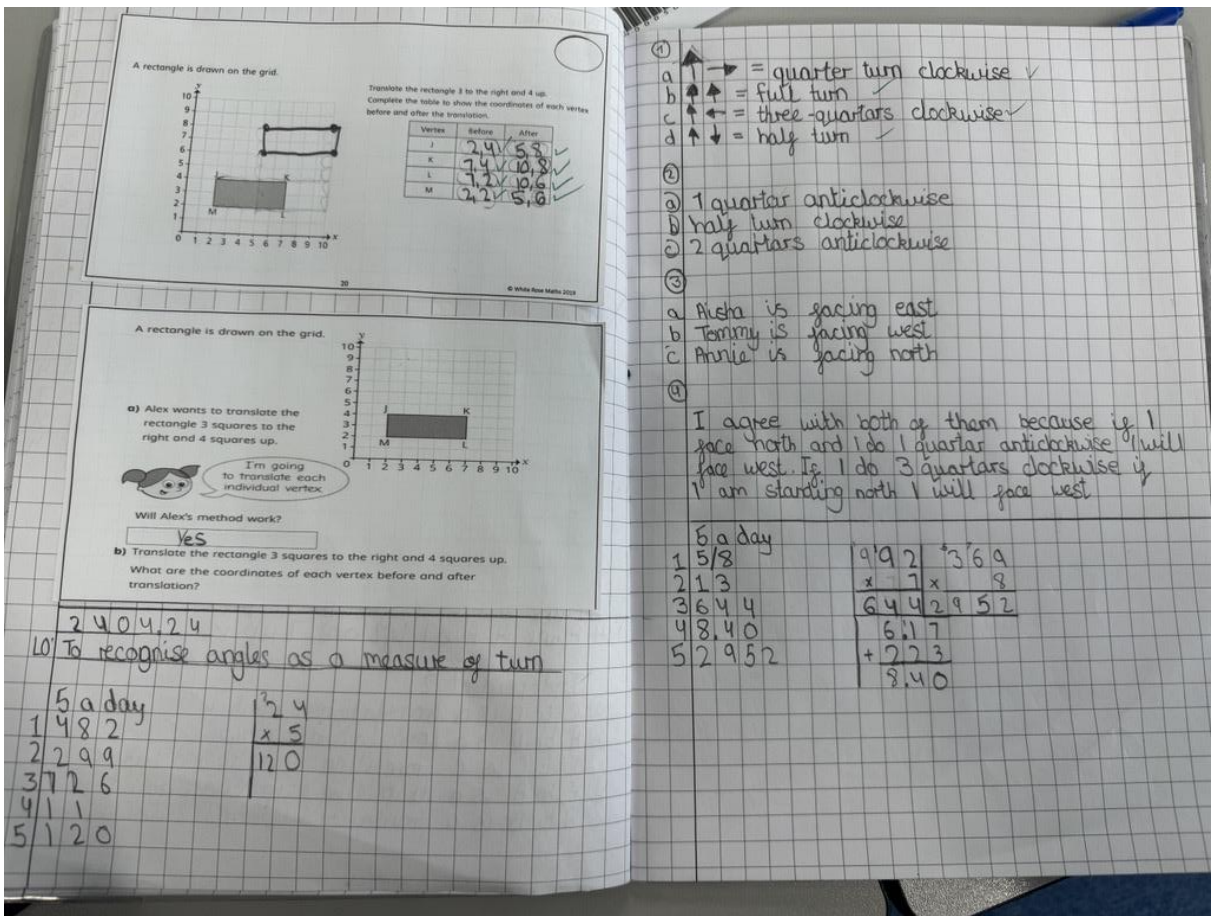 A rectangle is drawn on the grid.
Translate the rectangle 3 to the right and 4 up.
Complete the table to show the coordinates of each vertex
before and after the translation.
Vertex Before After
J 2,4 5,8
K 7,4 10,8
L 7,2 10,6
M 2,2 5,6
y
10
9
8
7
6
5
4
3
2
1
K
M L
0 1 2 3 4 5 6 7 8 9 10 x
20
© White Rose Maths 2019
A rectangle is drawn on the grid.
y
10
9
8
7
6
5
4
3
2
1
J K
M L
0 1 2 3 4 5 6 7 8 9 10 x
a) Alex wants to translate the
rectangle 3 squares to the
right and 4 squares up.
I'm going
to translate each
individual vertex
Will Alex's method work?
Yes
b) Translate the rectangle 3 squares to the right and 4 squares up.
What are the coordinates of each vertex before and after
translation?
240424
LO: To recognise angles as a measure of turn
5 a day
1 482
2 299
3 726
4 11
5 120
24
x 5
120
1
a = quarter turn clockwise
b = full turn
c = three-quartars clockwise
d = half turn
2
a 1 quartar anticlockwise
b half turn clockwise
c 2 quartars anticlockwise
3
a Aisha is facing east
b Tommy is facing west
c Annie is facing north
4
I agree with both of them because if I
face north and I do 1 quartar anticlockwise I will
face west. If I do 3 quartars clockwise if
I am standing north I will face west
5 a day
1 5/8
2 13
3 644
4 8.40
5 2952
92 369
x 7 x 8
644 2952
6.17
+ 223
8.40